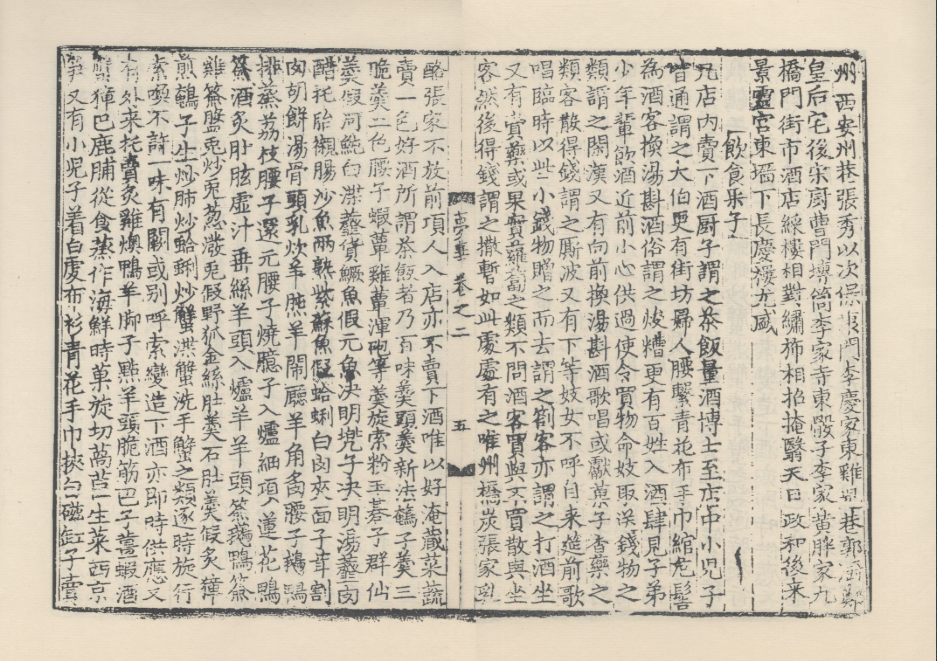 州西安州巷張秀以次保康門李慶家東雞兒巷郭厨鄭
皇后宅後宋厨曹門塼筒李家寺東骰子李家黃胖家九
橋門街市酒店綵樓相對繡斾相招掩翳天日政和後來
景靈宮東墻下長慶樓尤盛
飲食果子
凡店內賣下酒厨子謂之茶飯量酒博士至店中小兒子
皆通謂之大伯更有街坊婦人腰繫青花布手巾綰危髻
為酒客換湯斟酒俗謂之焌糟更有百姓入酒肆見子弟
少年輩飲酒近前小心供過使令買物命妓取送錢物之
類謂之閑漢又有向前換湯斟酒歌唱或獻菓子香藥之
類客散得錢謂之厮波又有下等妓女不呼自來筵前歌
唱臨時以些小錢物贈之而去謂之劄客亦謂之打酒坐
又有賣藥或果實蘿蔔之類不問酒客買與不買散與坐
客然後得錢謂之撒暫如此處處有之唯州橋炭張家乳
夢華 卷之二 五
酪張家不放前項人入店亦不賣下酒唯以好淹藏菜蔬
賣一色好酒所謂茶飯者乃百味羹頭羹新法鵪子羹三
脆羹二色腰子蝦蕈雞蕈渾砲等羹旋索粉玉碁子群仙
羹假河魨白渫虀貨鱖魚假元魚决明兜子决明湯虀肉
醋托胎襯腸沙魚兩熟紫蘇魚假蛤蜊白肉夾面子茸割
肉胡餅湯骨頭乳炊羊肫羊閙廳羊角腰子鵝鴨
排蒸荔枝腰子還元腰子燒臆子入爐細項蓮花鴨
簽酒炙肚胘虛汁垂絲羊頭入爐羊羊頭簽鵝鴨簽
雞簽盤兔炒兔葱潑兔假野狐金絲肚羹石肚羹假炙獐
煎鵪子生炒肺炒蛤蜊炒蟹渫蟹洗手蟹之類逐時旋行
索喚不許一味有闕或别呼索變造下酒亦即時供應又
有外來托賣炙雞燠鴨羊脚子點羊頭脆筋巴子薑蝦酒
蟹獐巴鹿脯從食蒸作海鮮時菓旋切萵苣生菜西京
笋又有小兒子着白䖍布衫青花手巾挾白磁缸子賣